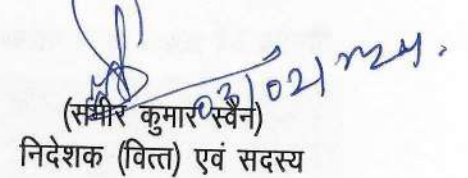 03/02/2024.
(समीर कुमार स्वैन)
निदेशक (वित्त) एवं सदस्य